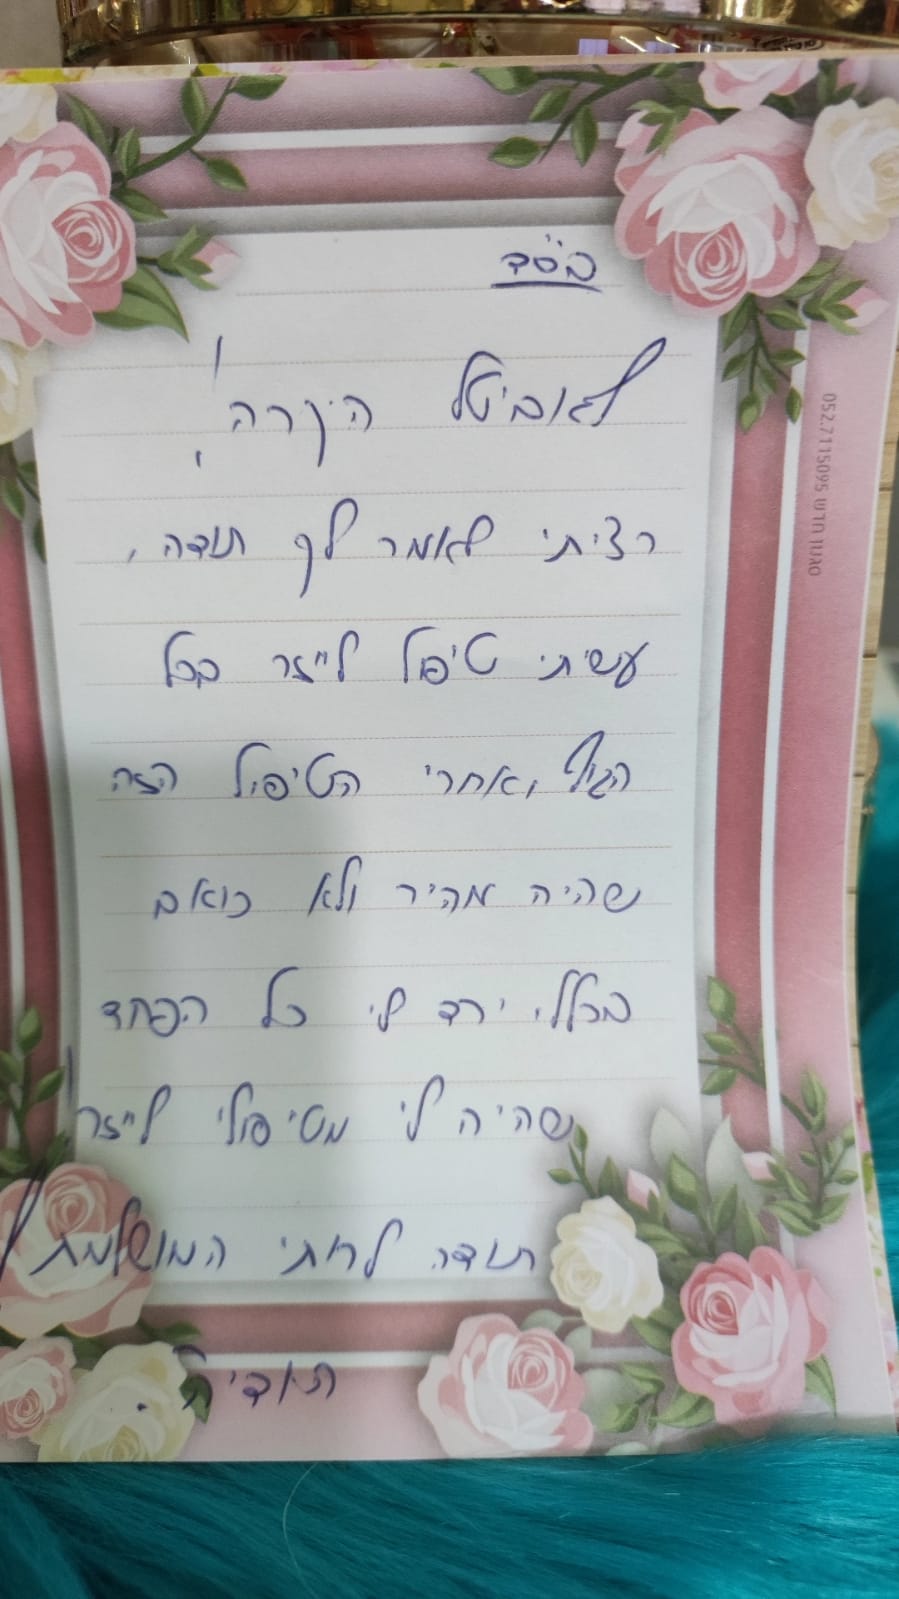 בס"ד
לאביטל היקרה!
רציתי לאמר לך תודה,
עשיתי טיפול לייזר בכל
הגוף, אחרי הטיפול הזה
שהיה מהיר ולא כואב
בכלל, ירד לי כל הפחד
שהיה לי מטיפולי לייזר,
תודה לרותי המושלמת!
תאדיה.
סגנון חדש 052.7115095